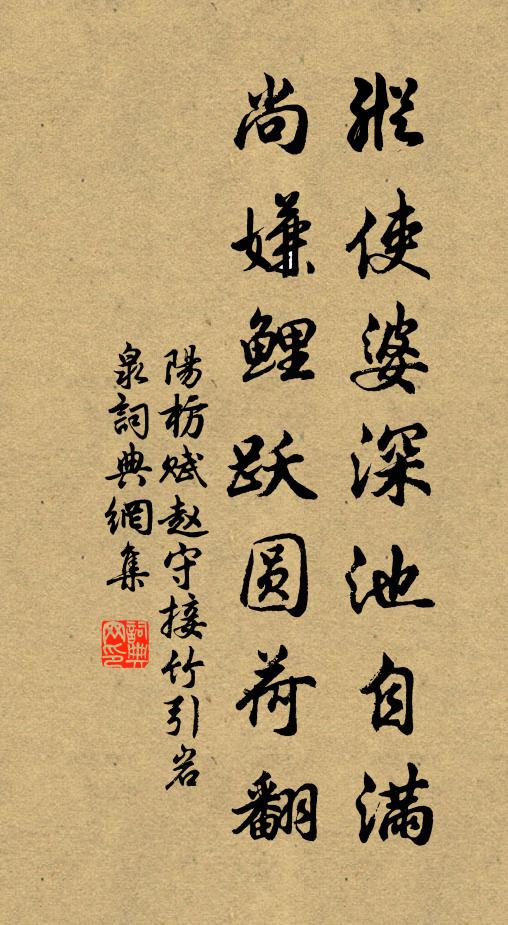 縱使婆深池自滿
尚嫌鲤跃圆荷翻
陽枋赋赵守接竹引岩
泉詞典網集
詞典網印